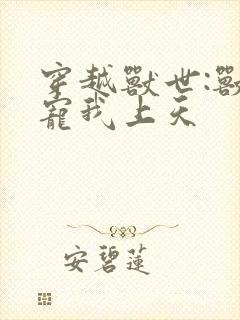 穿越獸世:獸
寵我上天
安碧蓮